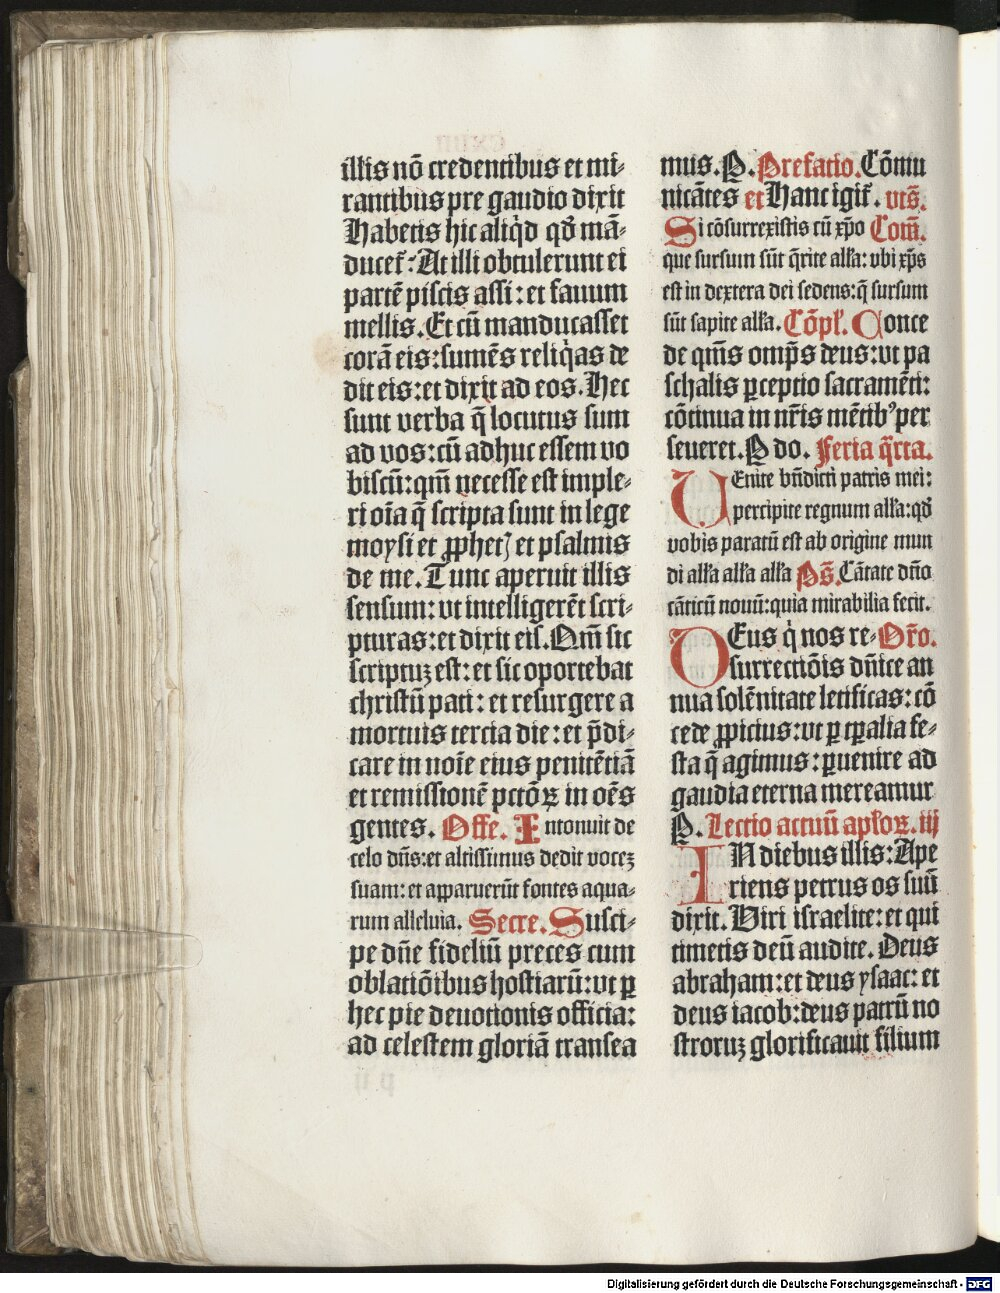 illis nō credentibus et mi-
rantibus pre gaudio dixit
Habetis hic aliq̇d qđ mā-
ducet᷑: At illi obtulerunt ei
partē piscis assi: et fauum
mellis. Et cū manducasset
corā eis: sumēs reliq̇as de
dit eis: et dixit ad eos. Hec
sunt verba q̄ locutus sum
ad vos: cū adhuc essem vo
biscū: qm̄ necesse est imple-
ri oīa q̄ scripta sunt in lege
moysi et ꝓphetꝭ et psalmis
de me. Tunc aperuit illis
sensum: vt intelligerēt scri-
pturas: et dixit eis. Qm̄ sic
scriptuꝫ est: et sic oportebat
christū pati: et resurgere a
mortuis tercia die: et p̄di-
care in noīe eius penitētiā
et remissionē pctōꝝ in oēs
gentes. Offe. Intonuit de
celo dn̄s: et altissimus dedit voceꝫ
suam: et apparuerūt fontes aqua-
rum alleluia. Secre. Susci-
pe dn̄e fideliū preces cum
oblatiōibus hostiarū: vt ꝑ
hec pie deuotionis officia:
ad celestem gloriā transea
mus. P. Prefatio. Cōmu
nicātes et Hanc igit᷑. vts̄.
Si cōsurrexistis cū xp̄o Com̄.
que sursum sūt q̄rite alľa: vbi xp̄s
est in dextera dei sedens: q̄ sursum
sūt sapite alľa. Cōpľ. Conce
de qm̄s omp̄s deus: vt pa
schalis ꝑceptio sacramēti:
cōtinua in nr̄is mētibꝰ per
seueret. P do. Feria q̄rta.
VEnite bn̄dicti patris mei:
percipite regnum alľa: qđ
vobis paratū est ab origine mun
di alľa alľa alľa Ps̄. Cātate dn̄o
cāticū nouū: quia mirabilia fecit.
DEus q̇ nos re- Or̄o.
surrectiōis dn̄ice an
nua solēnitate letificas: cō
cede ꝓpicius: vt ꝑ tꝑalia fe-
sta q̄ agimus: ꝑuenire ad
gaudia eterna mereamur
P. Lectio actuū apľoꝝ. iij
IN diebus illis: Ape
riens petrus os suū
dixit. Viri israelite: et qui
timetis deū audite. Deus
abraham: et deus ysaac: et
deus iacob: deus patrū no
stroruꝫ glorificauit filium
Digitalisierung gefördert durch die Deutsche Forschungsgemeinschaft - DFG